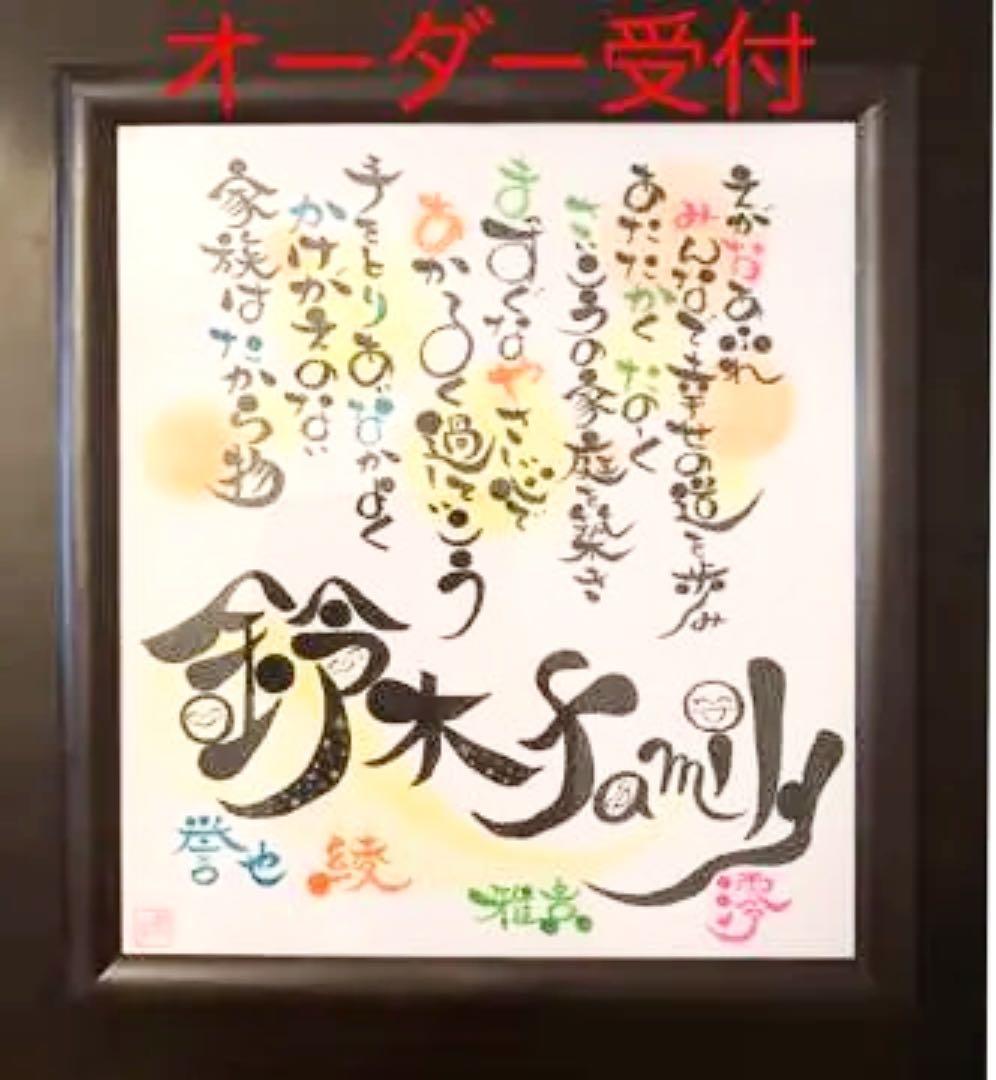 オーダー受付
えがおあふれ
みんなで幸せの道を歩み
あたたかく たのしく
さいこうの家庭を築き
まっすぐな やさしい心で
あかるく過していこう
手をとりあいなかよく
かけがえのない
家族はたから物
鈴木family
誉也 綾 雅喜 澪